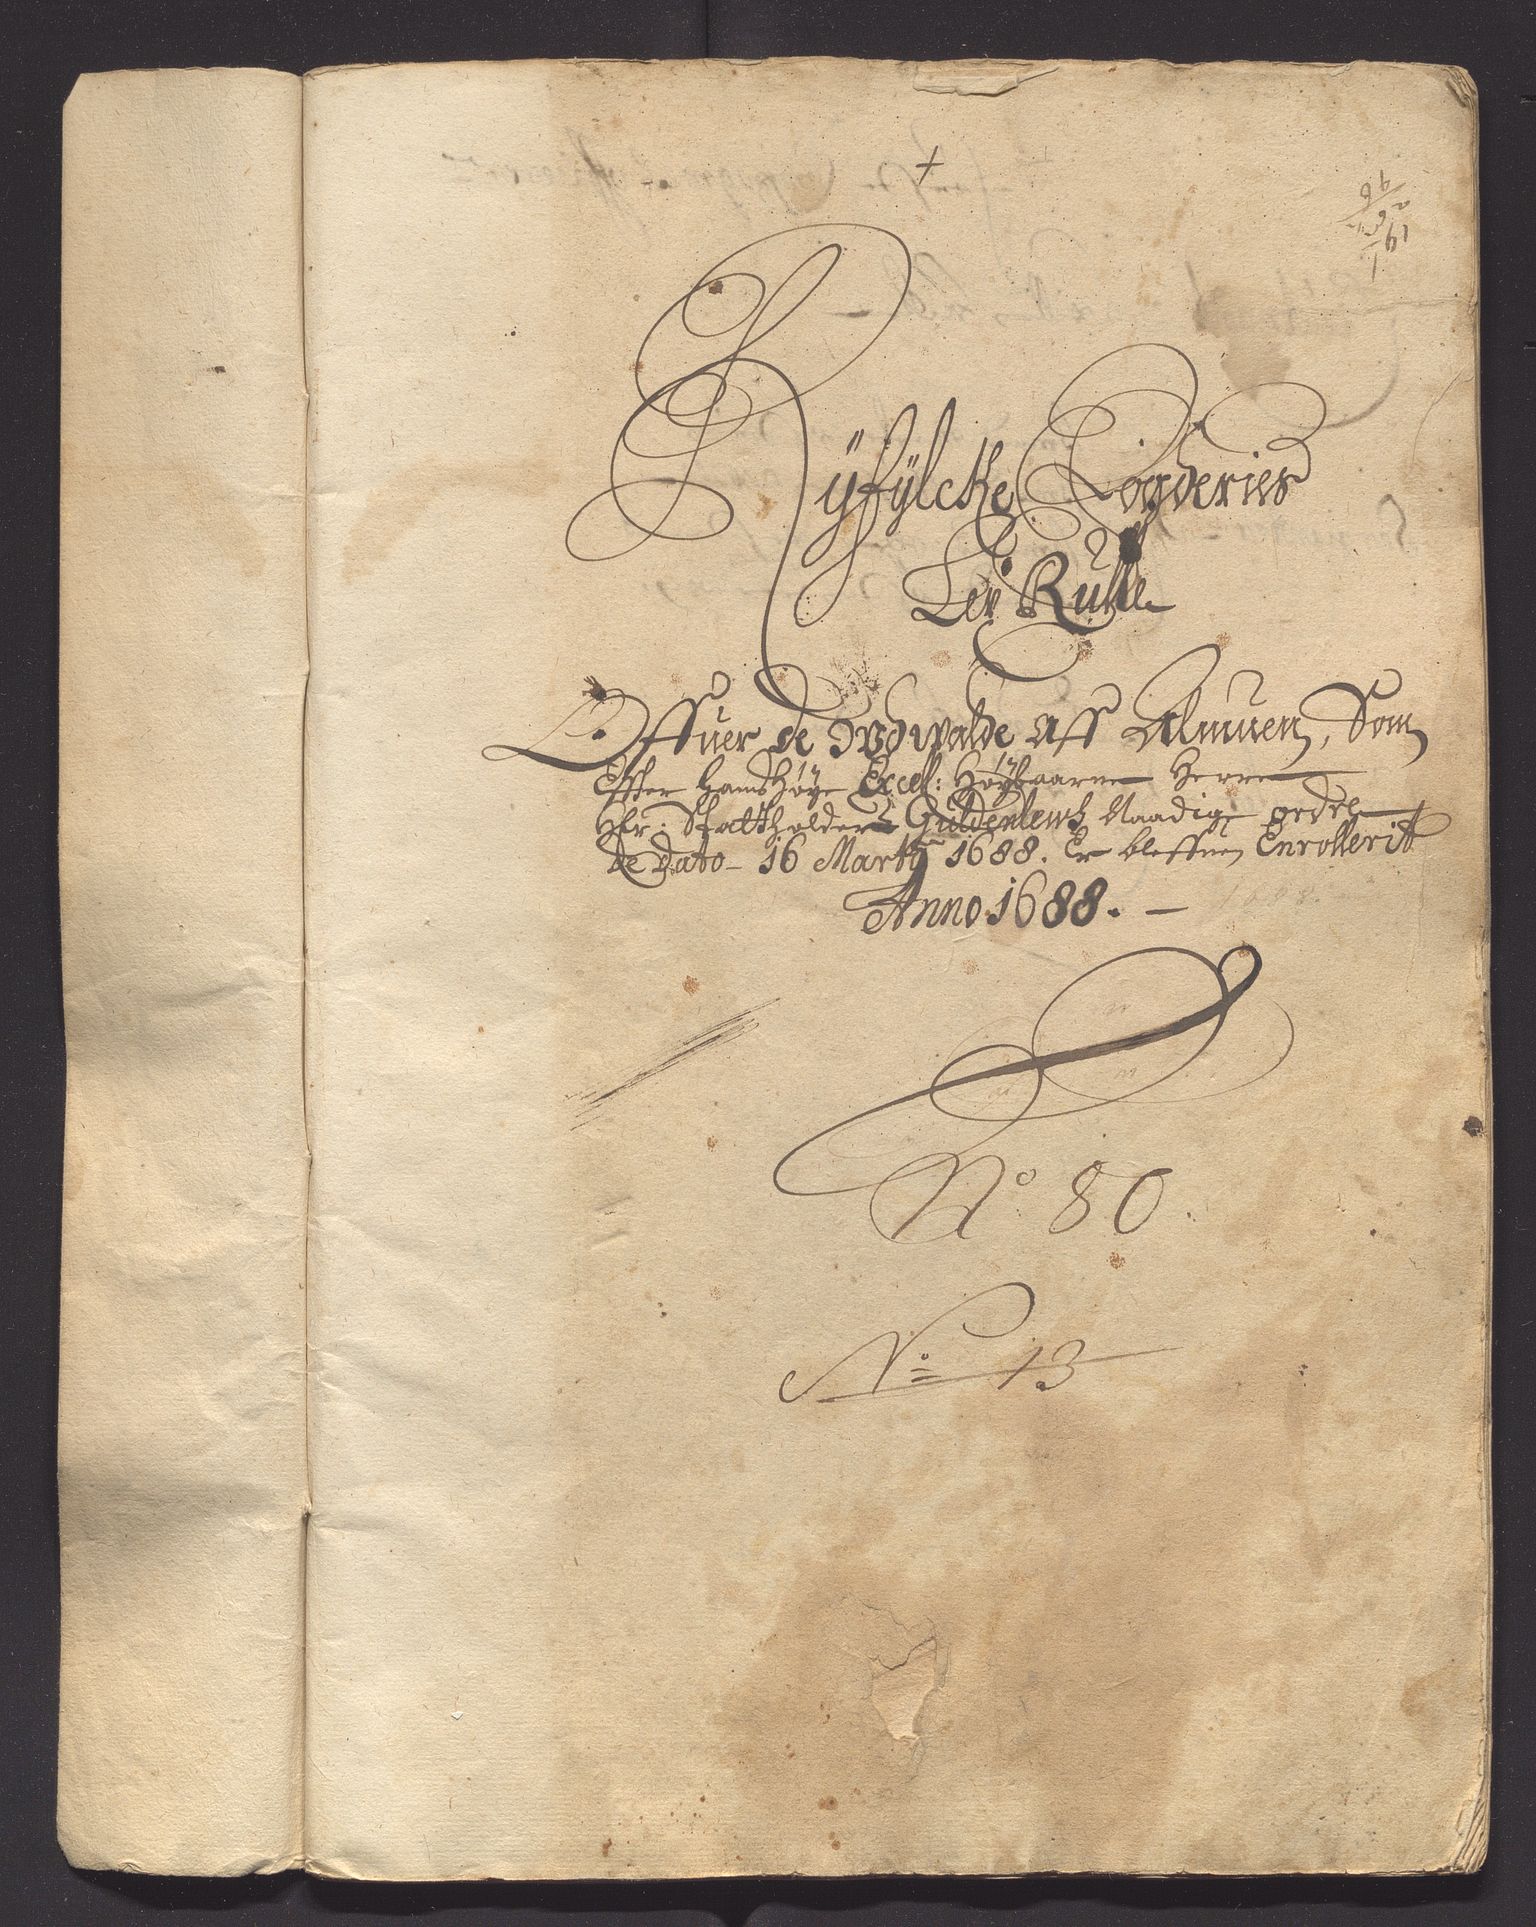 +
Ryfylcke Fogderies
Lei Rulle
Offuer de Vdvalde aff Almuen, Som
Effter Hans Høye Excell: Høybaarne Herre
Hr: Statholder Guldenlews Naadige ordre
de Dato - 16 Marty 1688. Er bleffuen Enrollerit
Anno 1688. -
No 80.
No 13